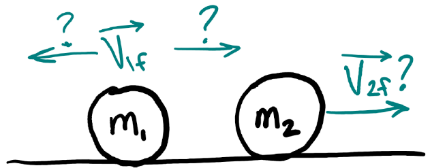 ? V₁f ?
V₂f ?
m₁ m₂